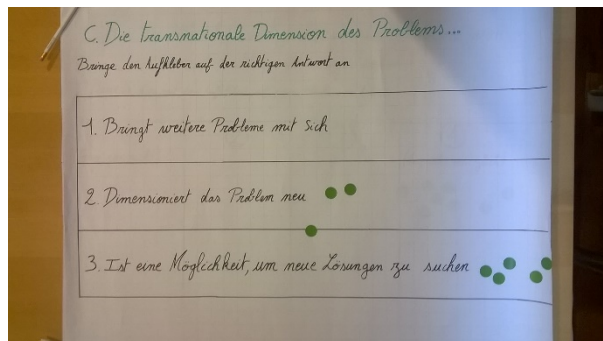 C. Die transnationale Dimension des Problems...
Bringe den Aufkleber auf der richtigen Antwort an
1. Bringt weitere Probleme mit sich
2. Dimensioniert das Problem neu
3. Ist eine Möglichkeit, um neue Lösungen zu suchen